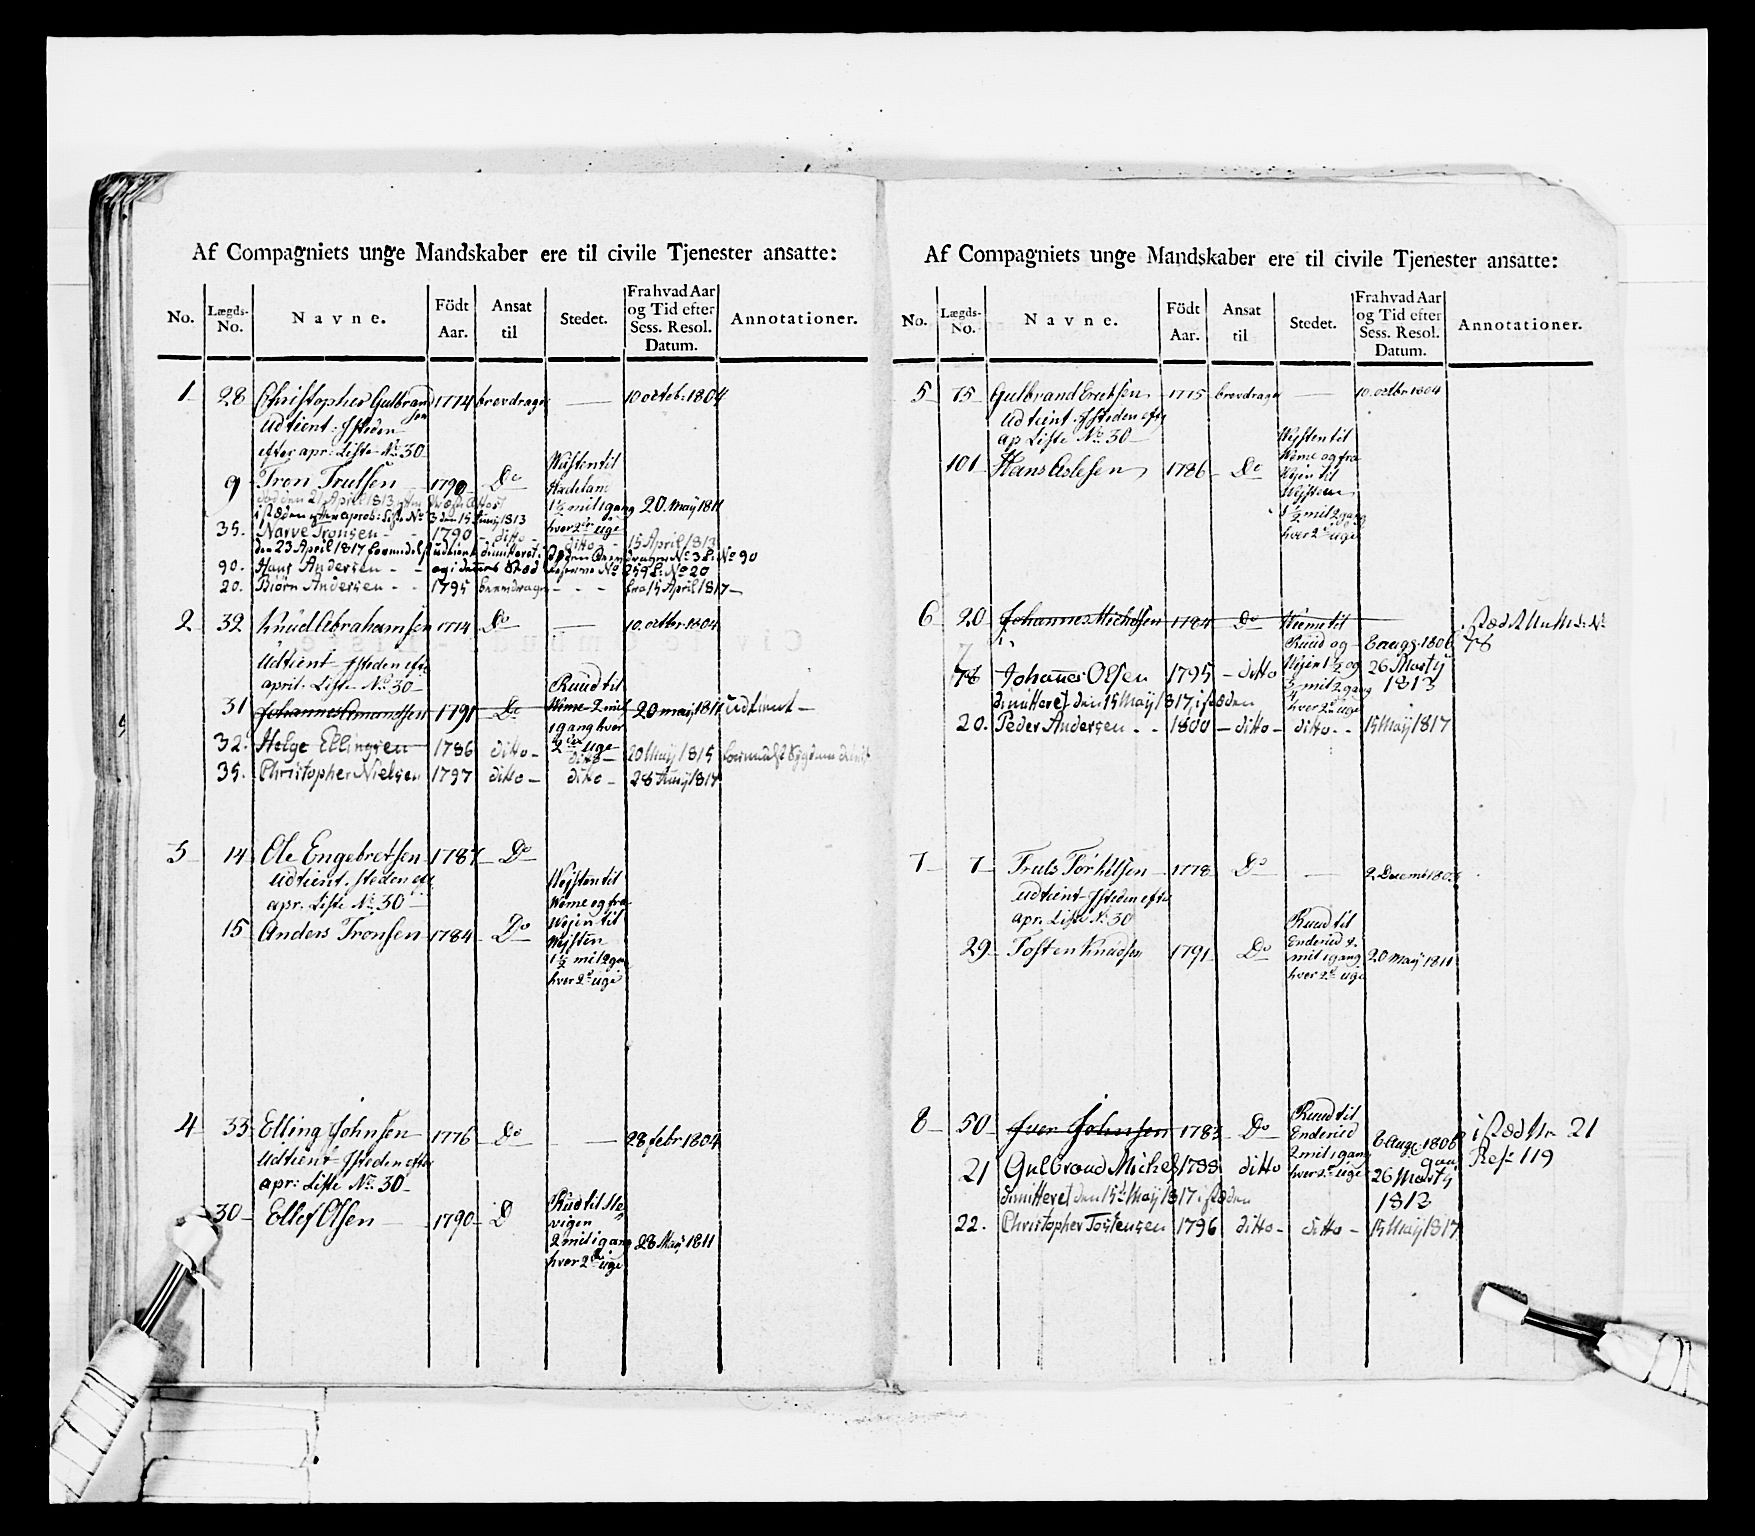 Af Compagniets unge Mandskaber ere til civile Tjenester ansatte:
No. Lægds-No. Navne. Födt Aar. Ansat til Stedet. Fra hvad Aar og Tid efter Sess. Resol. Datum. Annotationer.
1 28 Christopher Gulbrandsen 1774 brevdrager — 10 octob: 1804
Udtient. Isteden
efter apr: Liste No 30
9 Tron Trulsen 1790 Do
1½ mil 1 gang hver 2den uge 20 May 1811
i stæden efter aprob: Liste No 3 den 15 Junij 1813
35. Narve Tronsen - - 1790 - ditto - ditto - 15 April 1813
den 23 April 1817
90. Hans Andersen - -
20. Biörn Andersen - - 1795 brevdrager - - - fra 15 April 1817 —
2 32 Knud Abrahamsen 1774 Do — 10. octbr 1804
Udtient Isteden efter
april. Liste No 30
31 Johannes Amundsen 1791 Do Ruud til Weme 2 mil 1 gang hver 2den uge 20 may 1811 Udtient —
32. Helge Ellingsen 1786 ditto - ditto 20 Maij 1815
35. Christopher Nielsen 1797 ditto - ditto - 28 Junij 1817
3 14 Ole Engebretsen 1787 Do
Udtient. Isteden eft
apr. Liste No 30
15 Anders Tronsen 1784 Do Wejsten til
Weme og fra
Wejen til
Wejsten
1½ mil 2 gan
hver 2de uge
4 33 Elling Johnsen 1776 Do — 28 febr 1804
Udtient Isteden efter
apr: Liste No 30
30 Ellef Olsen 1790 D
2 mil 1 gang hver 2de uge 28 May 1811
Af Compagniets unge Mandskaber ere til civile Tjenester ansatte:
No. Lægds-No. Navne. Födt Aar. Ansat til Stedet. Fra hvad Aar og Tid efter Sess. Resol. Datum. Annotationer.
5 75 Gulbrand Erichsen 1775 brevdrager — 10. octbr 1804
Udtient. Isteden efter
ap Liste No 30
101 Hans Aslesen 1786 Do Wejsten til
Weme og fra
Wejen til
Wejsten
1½ mil 2 gang
hver 2de uge
6 20 Johannes Michelsen 1784 Do Weme til
Ruud og 6 augs. 1806 78
78 Johannes Olsen 1795 - ditto Wejen 1½ og 26 Martij 1813
dimitteret den 15 Maij 1817, i stæden
20. Peder Andersen - - 1800 - ditto - ditto - - 15 Maij 1817
7 7 Truls Torkilsen 1778 Do — 2 Decemb 180
Udtient Isteden efter
apr. Liste No 30
29 Tosten Knudsen 1791 Do Ruud til
Enderud 2
mil 1 gang
hver 2de uge 20 may 1811
8 50 Iver Johnsen 1783 Do Ruud til
Enderud
2 mil 1 gang
hver 2de uge 6 Aug: 1806 i stæd Nr 21
21 Gulbrand Michels 1788 ditto 26 Martij 1813 Res 119
dimitteret den 15de Maij 1817 i stæden
22. Christopher Tostensen 1796 ditto - ditto - 15 Maij 1817